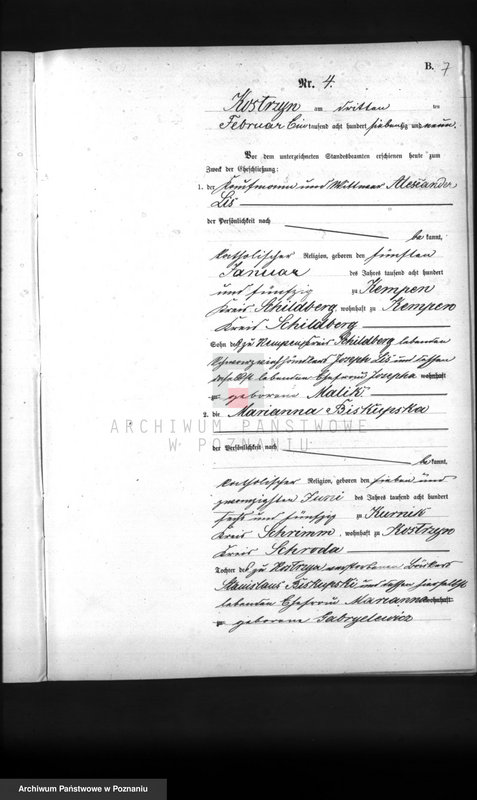 B. 7
Nr. 4.
Kostrzyn am dritten ten
Februar Eintausend acht hundert siebenzig und neun.
Vor dem unterzeichneten Standesbeamten erschienen heute zum
Zweck der Eheschließung:
1. der Kaufmann und Wittwer Alexander
Lis
der Persönlichkeit nach
bekannt,
katholischer Religion, geboren den fünften
Januar des Jahres tausend acht hundert
und fünfzig zu Kempen
Kreis Schildberg, wohnhaft zu Kempen
Kreis Schildberg
Sohn des zu Kempen Kreis Schildberg lebenden
Joseph Lis und dessen
daselbst lebenden Ehefrau Josepha wohnhaft
zu geborene Malik.
2. die Marianna Biskupska
ARCHIWUM PAŃSTWOWE
W POZNANIU
der Persönlichkeit nach
bekannt,
katholischer Religion, geboren den sieben und
zwanzigsten Juni des Jahres tausend acht hundert
sechs und fünfzig zu Kurnik
Kreis Schrimm, wohnhaft zu Kostrzyn
Kreis Schroda
Tochter des zu Kostrzyn verstorbenen
Stanislaus Biskupski und dessen hierselbst
lebenden Ehefrau Marianna wohnhaft
zu geborene Gabryelewicz
Archiwum Państwowe w Poznaniu